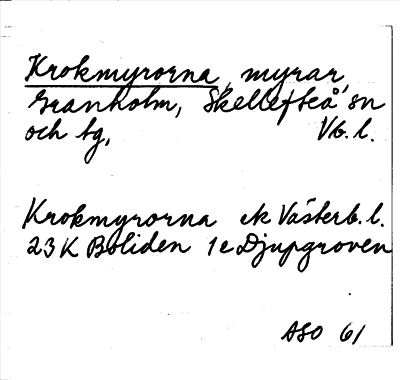 Krokmyrorna, myrar,
Granholm, Skellefteå sn
och tg, Vb. l.
Krokmyrorna ek Västerb. l.
23K Boliden 1e Djupgroven
ASO 61